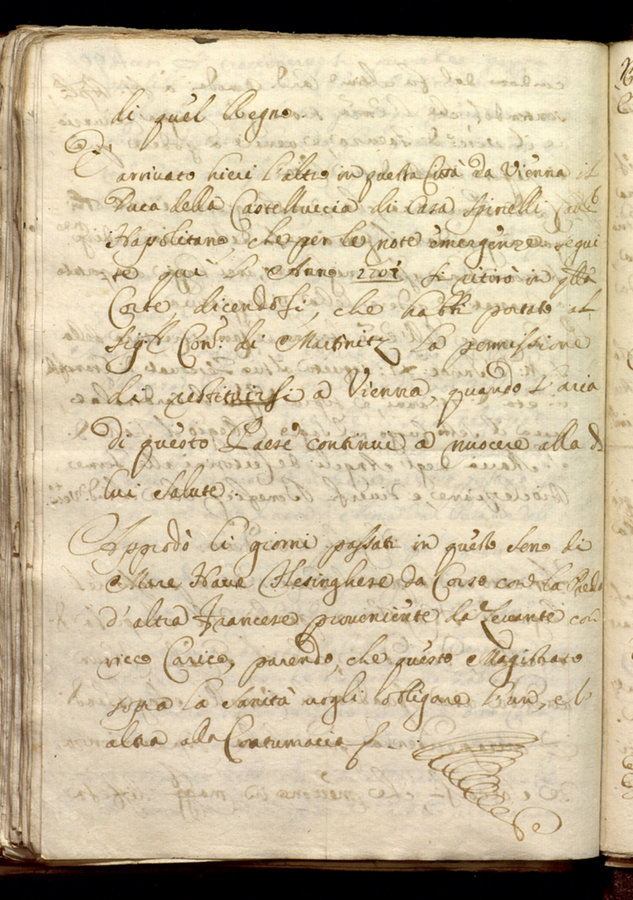 di quel Regno.
È arrivato hieri l'altro in questa Città da Vienna il
Duca della Castelluccia di Casa Spinelli, Cav.
Napolitano, che per le note emergenze segui
te quì l'Anno 1701 si ritirò in qta
Corte, dicendosi, che habbi portato al
Sigr Con: di Martinitz la permissione
di restituirsi a Vienna, quando l'aria
di questo Paese continui a nuocere alla di
lui salute.
Approdò li giorni passati in questo seno di
Mare Nave Flesinghese da Corso con la Preda
d'altra Francese proveniente da Levante con
ricco Carico, parendo, che questo Magistrato
sopra la Sanità vogli obligare l'una, e l'
altra alla Contumacia